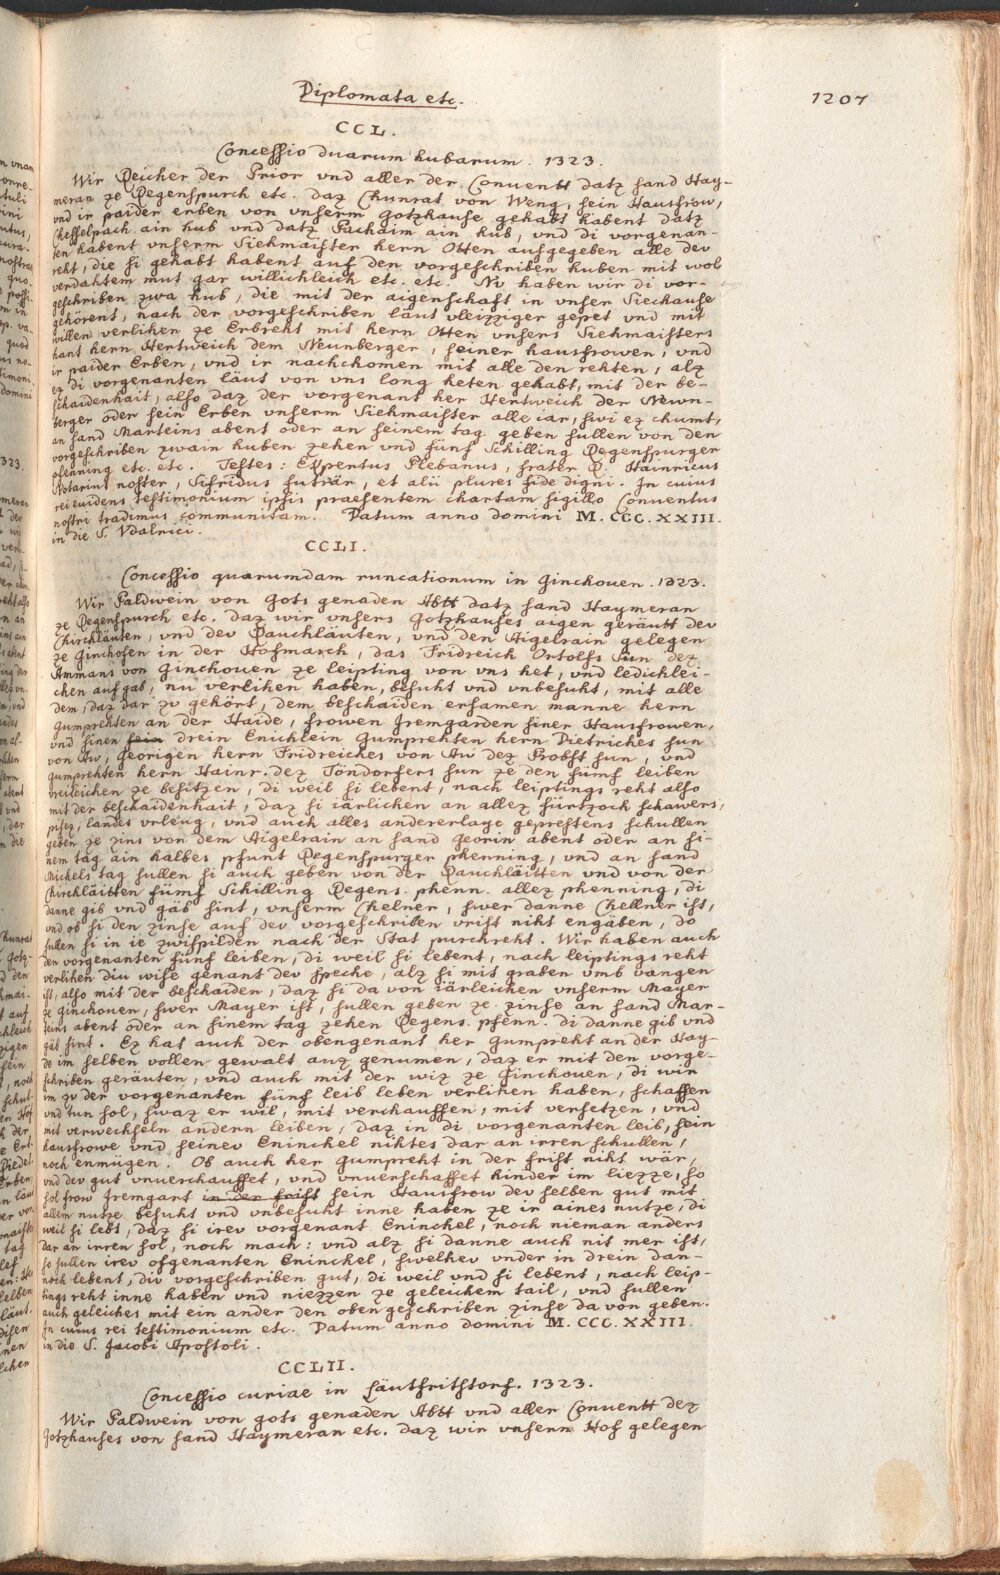 Diplomata etc.
1207
CCL.
Concessio duarum hubarum. 1323.
Wir Reicher der Prior vnd aller der Conuentt datz sand Hay-
meran ze Regenspurch etc. daz Chunrat von Weng, sein Hausfrow,
vnd ir paider erben von vnserm Gotzhause gehabt habent datz
Chesselpach ain hub vnd datz Pachaim ain hub, vnd di vorgenan-
ten habent vnserm Siechmaister hern Otten aufgegeben alle dev
reht, die si gehabt habent auf den vorgeschriben huben mit wol
verdahtem mut gar willichleich etc. etc. Nv haben wir di vor-
geschriben zwa hub, die mit der aigenschaft in vnser Siechause
gehörent, nach der vorgeschriben läut vleizziger gepet vnd mit
willen verlihen ze Erbreht mit hern Otten vnsers Siechmaisters
hant hern Hertweich dem Neunberger, seiner hausfrowen, vnd
ir paider Erben, vnd ir nachchomen mit alle den rehten, alz
ez di vorgenanten läut von vns long heten gehabt, mit der be-
schaidenhait, also daz der vorgenant her Hentweich der Newn-
berger oder sein Erben vnserm Siechmaister alle iar, swi ez chumt,
an sand Marteins abent oder an seinem tag geben sullen von den
vorgeschriben zwain huben zehen vnd fünf Schilling Regenspurger
pfenning etc. etc. Testes: Espentus Plebanus, frater D: Hainricus
Notarius noster, Sifridus sutvär, et alii plures fide digni. In cuius
rei euidens testimonium ipsis praesentem chartam sigillo Conuentus
nostri tradimus communitam. Datum anno domini M. CCC. XXIII.
in die S. Vdalrici.
CCLI.
Concessio quarumdam runcationum in Ginchouen. 1323.
Wir Paldwein von Gots genaden Abtt datz sand Haymeran
ze Regenspurch etc. daz wir vnsers Gotzhauses aigen geräutt dev
Chirchläuten, vnd dev Rauchläuten, vnd den Aigelrain gelegen
ze Ginchofen in der Hofmarch, das Fridreich Ortolfs sun dez
Ammans von Ginchouen ze leipting von vns het, vnd ledichlei-
chen auf gab, nu verlihen haben, besuht vnd vnbesuht, mit alle
dem, daz dar zv gehört, dem beschaiden ersamen manne hern
Gumprehten an der Haide, frowen Jremgarden siner Hausfrowen,
vnd sinen sein drein Enichlein Gumprehten hern Dietriches sun
von Aw, Georigen hern Fridreiches von Aw dez Probst sun, vnd
Gumprehten hern Hainr. dez Töndorfers sun ze den fümf leiben
vreileichen ze besitzen, di weil si lebent, nach leiptings reht also
mit der beschaidenhait, daz si iärlichen an allez fürtzoch schawers,
pisez, landes vrleug, vnd auch alles andererlaye geprestens schullen
geben ze zins von dem Aigelrain an sand Georin abent oder an si-
nem tag ain halbes pfunt Regenspurger phenning, vnd an sand
Michels tag sullen si auch geben von der Rauchläitten vnd von der
Chirchläitten fümf Schilling Regens. phenn. allez phenning, di
danne gib vnd gäb sint, vnserm Chelner, swer danne Chellner ist,
vnd ob si den zinse auf dev vorgeschriben vrist niht engäben, so
sullen si in ie zwispilden nach der Stat purchreht. Wir haben auch
den vorgenanten fünf leiben, di weil si lebent, nach leiptings reht
verlihen div wise genant dev specke, alz si mit graben vmb vangen
ist, also mit der beschaiden, daz si da von iärleichen vnserm Mayer
ze Ginchouen, swer Mayer ist, sullen geben ze zinse an sand Mar-
teins abent oder an sinem tag zehen Regens. pfenn. di danne gib vnd
gäb sint. Ez hat auch der obengenant her Gumpreht an der Hay-
de im selben vollen gewalt auz genumen, daz er mit den vorge-
schriben geräuten, vnd auch mit der wiz ze Ginchouen, di wir
im zv der vorgenanten fünf leib leben verlihen haben, schaffen
vnd tun sol, swaz er wil, mit verchauffen, mit versetzen, vnd
mit verwechseln andern leiben, daz in di vorgenanten leib, sein
hausfrowe vnd seinev Eninckel nihtes dar an irren schullen,
noch enmügen. Ob auch her Gumpreht in der frist niht wär,
vnd dev gut vnuerchauffet, vnd vnuerschaffet hinder im liezze, so
sol frow Jremgart in der frist sein Hausfrow dev selben gut mit
allem nutze besuht vnd vnbesuht inne haben ze ir aines nutze, di
weil si lebt, daz si irev vorgenant Eninckel, noch nieman anders
dar an irren sol, noch mach: vnd alz si danne auch nit mer ist,
so sullen irev ofgenanten Eninckel, swelhev vnder in drein dan-
noch lebent, div vorgeschriben gut, di weil vnd si lebent, nach leip-
tings reht inne haben vnd niezzen ze geleichem tail, vnd sullen
auch geleiches mit ein ander den oben geschriben zinse da von geben.
In cuius rei testimonium etc. Datum anno domini M. CCC. XXIII.
in die S. Jacobi Apostoli.
CCLII.
Concessio curiae in Säutfrithstorf. 1323.
Wir Paldwein von gots genaden Abtt vnd aller Conuentt dez
Gotzhauses von sand Haymeran etc. daz wir vnsern Hof gelegen